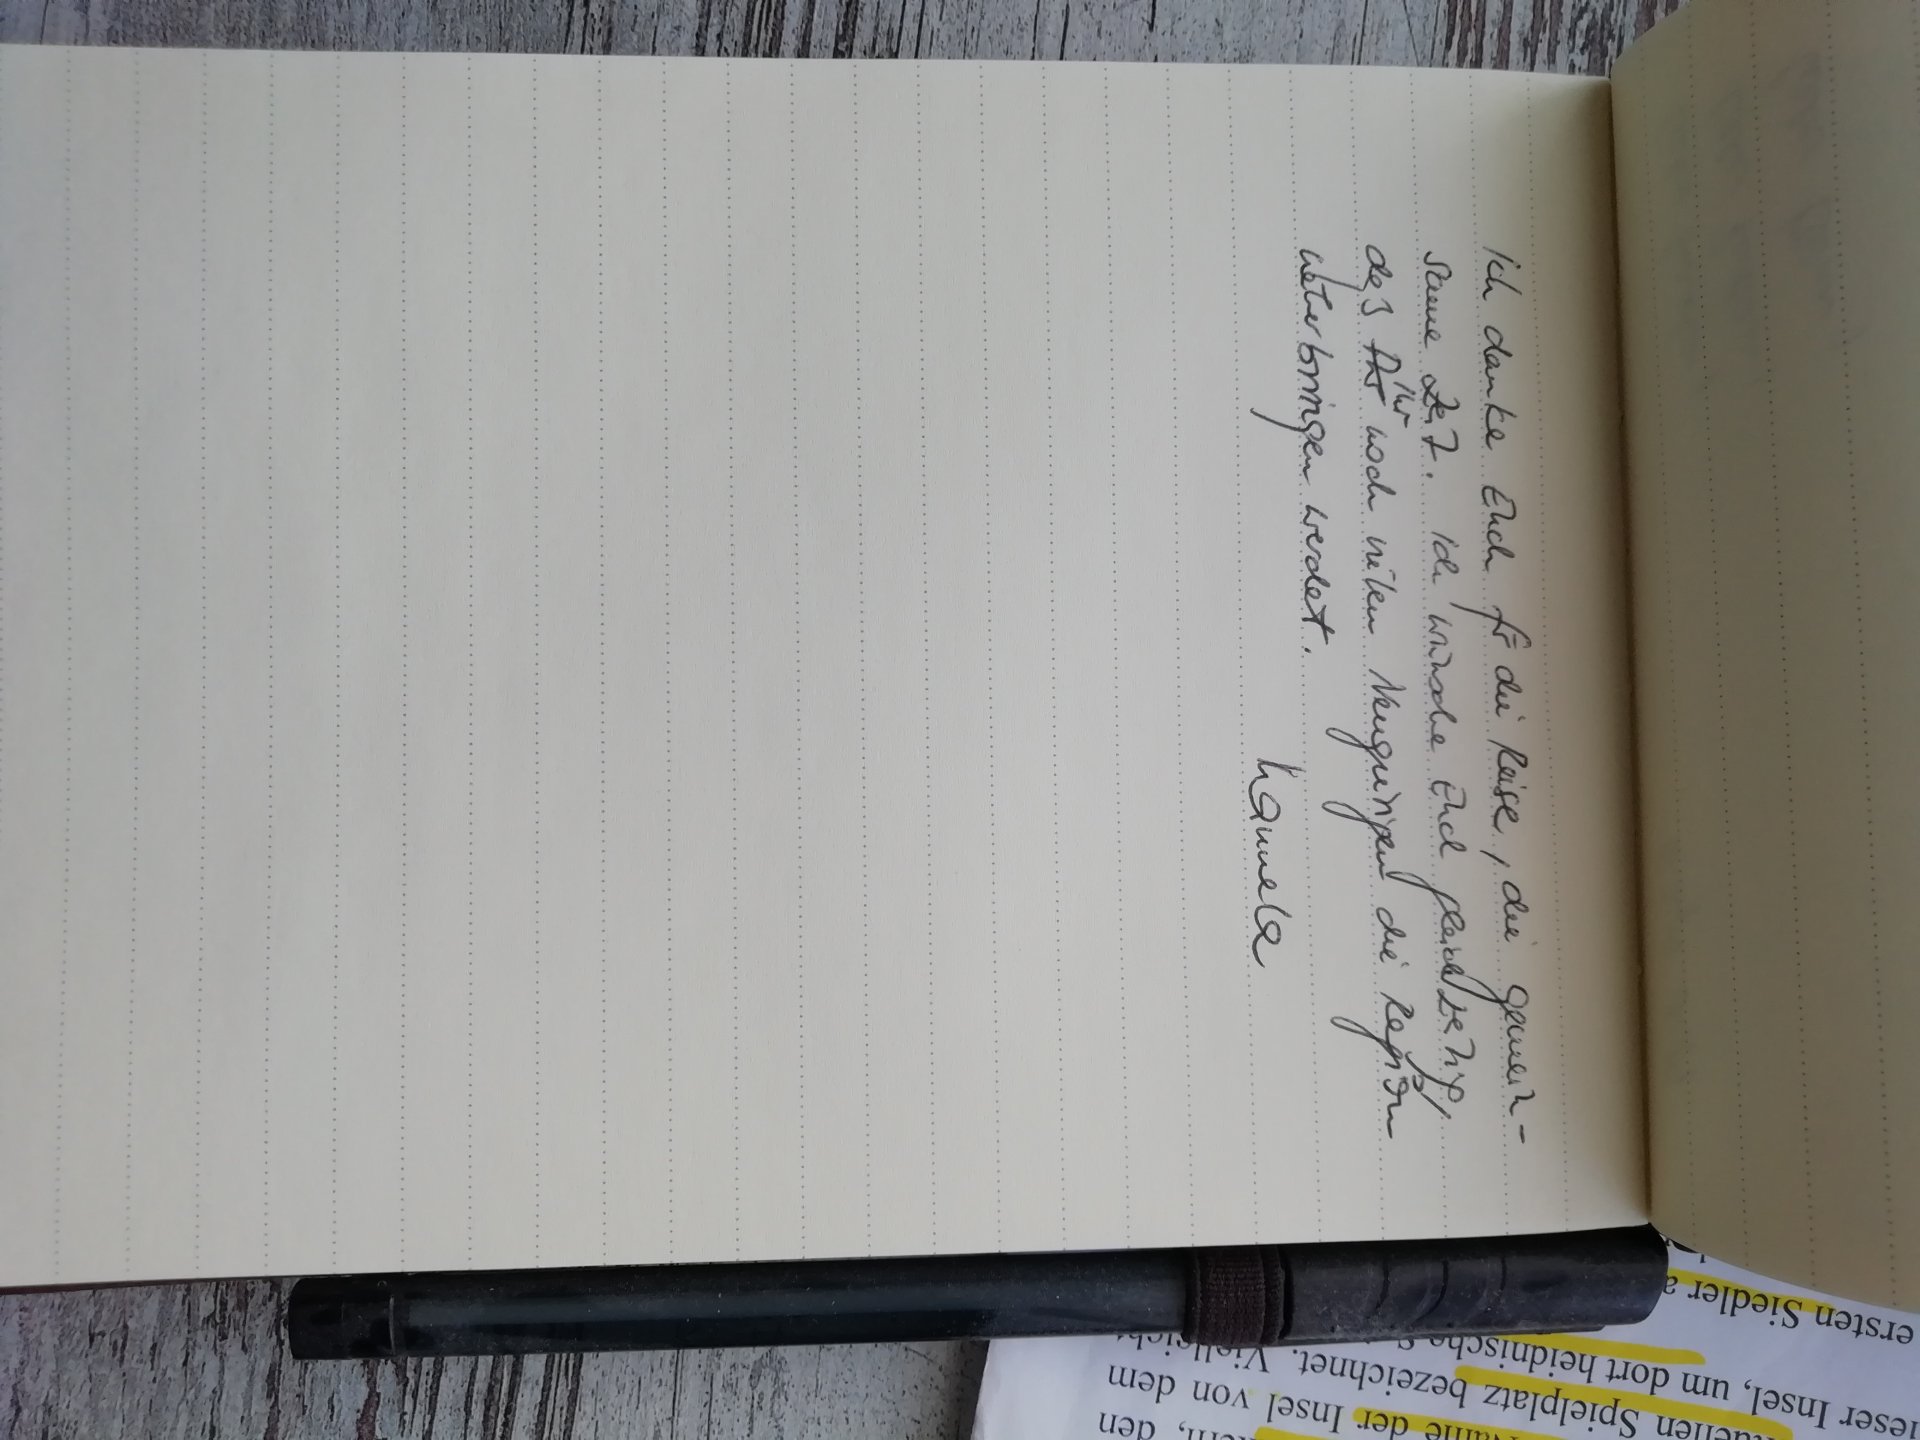 Ich danke Euch für die Reise, die gemein-
same Zeit. Ich wünsche Euch gleichzeitig,
das Ihr noch vielen Neugierigen die Region
weiterbringen werdet.
ersten Siedler a
ieser Insel, um dort heidnische
Spielplatz bezeichnet. Vielleicht
der Insel von dem
den